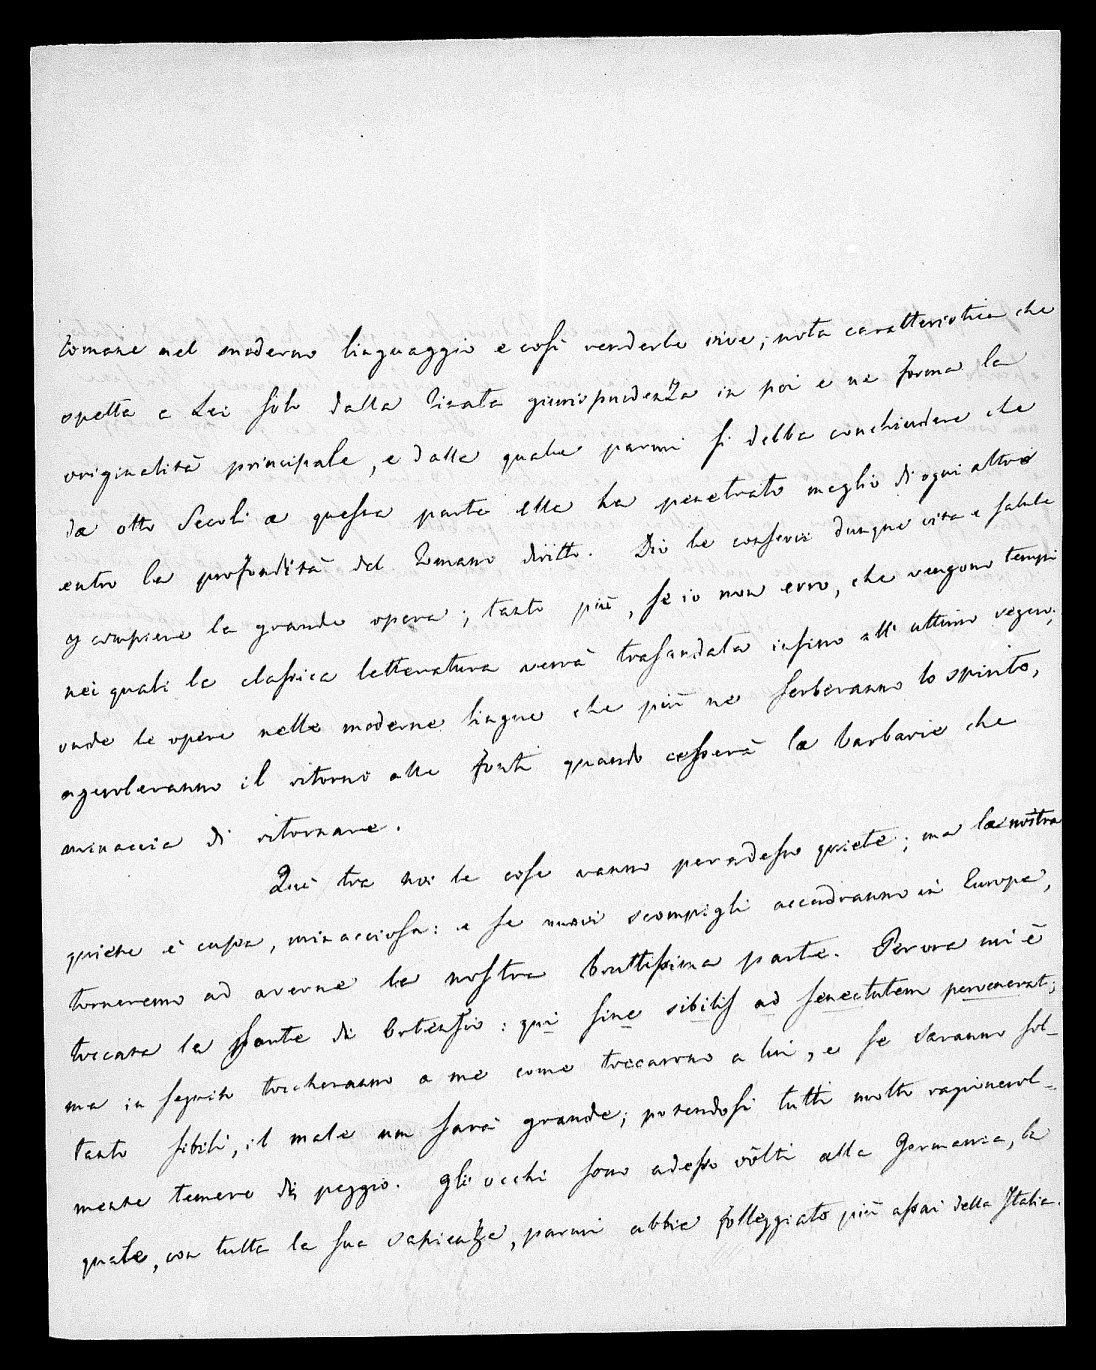 romane nel moderno linguaggio e così renderle vive; nota caratteristica che
spetta a Lei solo dalla rinata giurisprudenza in poi e ne forma la
originalità principale, e dalla quale parmi si debba conchiudere che
da otto secoli a questa parte ella ha penetrato meglio di ogni altro
entro la profondità del Romano diritto. Dio le conservi dunque vita e salute
a compiere la grande opera; tanto più, se io non erro, che vengono tempi
nei quali la classica letteratura verrà trasandata insino all' ultimo segno;
onde le opere nelle moderne lingue che più ne serberanno lo spirito,
agevoleranno il ritorno alle fonti quando cesserà la barbarie che
minaccia di ritornare.
Quì tra noi le cose vanno per adesso quiete; ma la nostra
quiete è cupa, minacciosa: e se nuovi scompigli accadranno in Europa,
torneremo ad averne la nostra bruttissima parte. Per ora mi è
toccata la sorte di Ortensio: qui sine sibilis ad senectutem pervenerat;
ma in seguito toccheranno a me come toccarono a lui, e se saranno sol-
tanto sibili, il male non sarà grande; potendosi tutti molto ragionevol-
mente temere di peggio. Gli occhi sono adesso vòlti alla Germania, la
quale, con tutta la sua sapienza, parmi abbia folleggiato più assai della Italia.